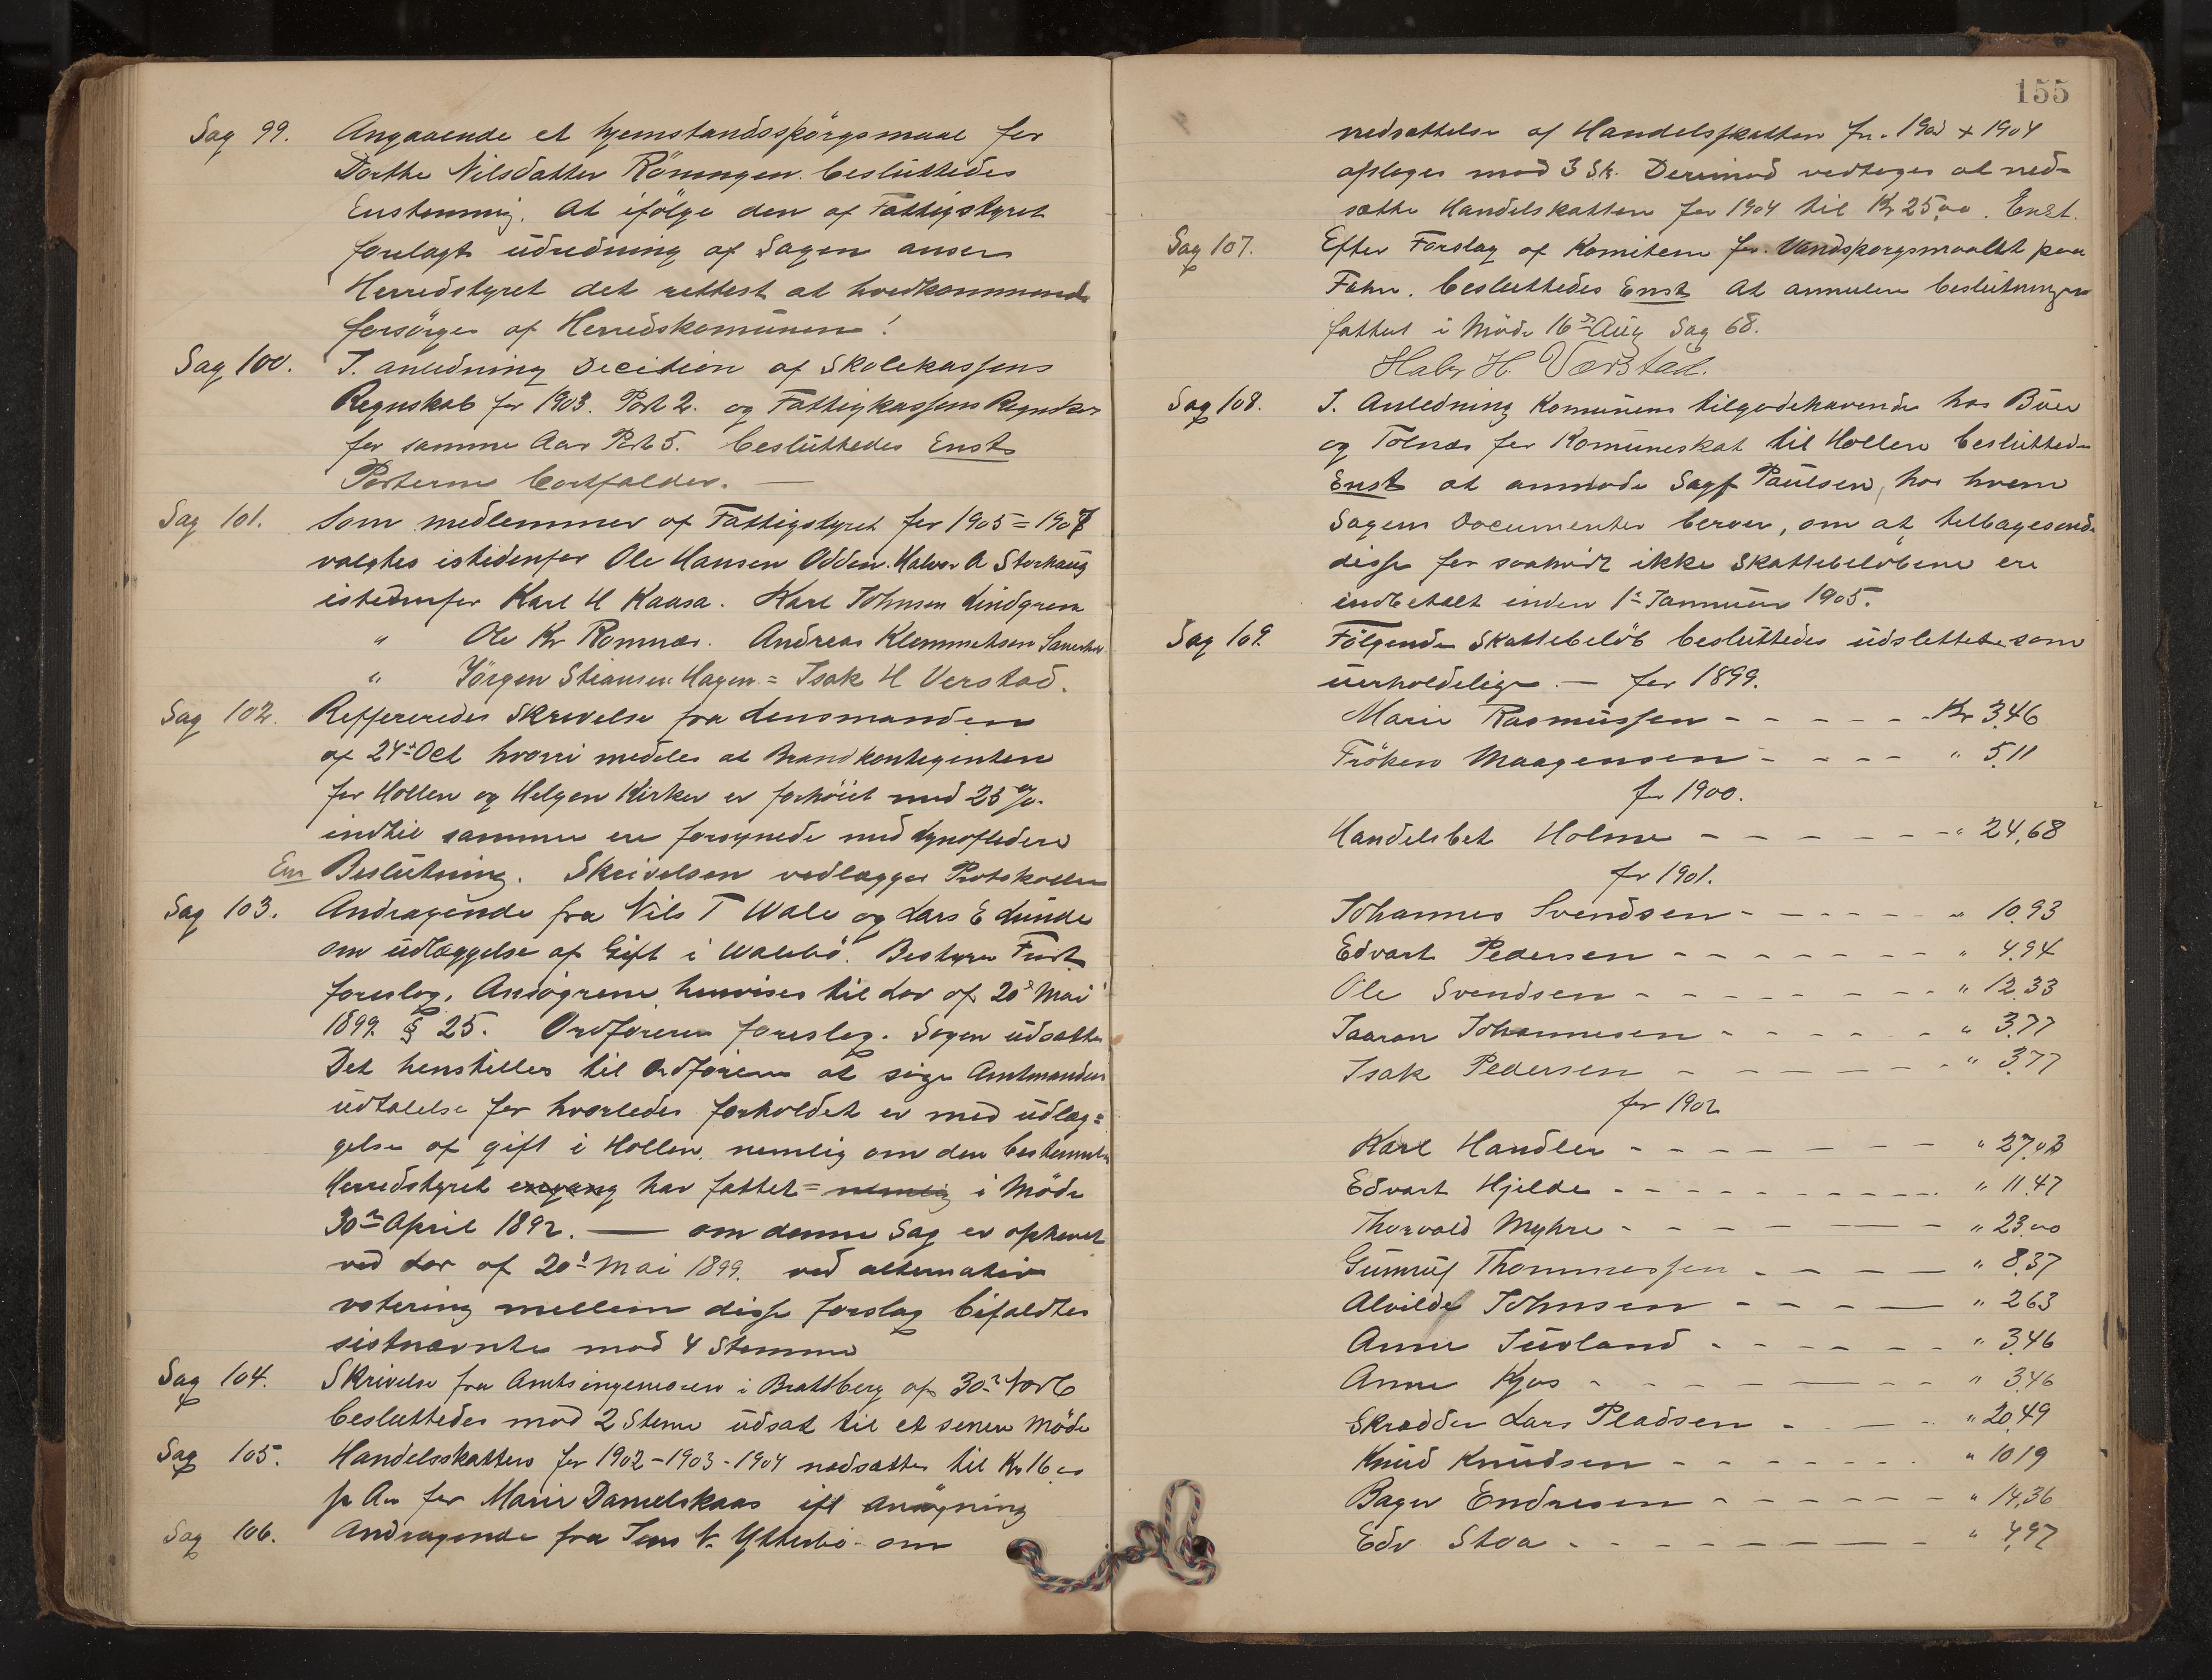 Sag 99. Angaaende et hjemstandsspörgsmaal for
Dorthe Nilsdatter Röningen. besluttedes
Enstemmig. At ifölge den af Fattigstyret
forelagt udredning af Sagen anser
Herredstyret det rettest at hvedkommende
forsörges af Herredskomunen!
Sag 100. I. anledning Decition af Skolekassens
Regnskab for 1903. Post 2. og Fattigkassens Regnskab
for samme Aar Post 5. besluttedes Enst.
Posterne bortfalder. —
Sag 101. Som medlemmer af Fattigstyret for 1905=1907
valgtes istedenfor Ole Hansen Odden. Halvor A Storhaug
istedenfor Karl H Kaasa. Karl Johnsen Lindgren
" Ole Kr Romnæs. Andreas Klemmetsen
" Jörgen Stiansen Hagen = Isak H Verstad.
Sag 102. Reffereredes Skrivelse fra Lensmanden
af 24de Oct hvori medeles at Brandkontegenten
for Hollen og Helgen Kirker er forhöiet med 25 %
indtil samme ere forsynede med Lynafledere
Beslutning. Skrivelsen vedlægges Protokollen
Sag 103. Andragende fra Nils T Wale og Lars E Lunde
om udlæggelse af Gift i Walebö. Bestyrer
foreslog, Ansögrene henvises til Lov af 20de Mai
1899 § 25. Ordföreren foreslog. Sagen udsættes
Det henstilles til Ordföreren at söge Amtmandens
udtalelse for hvorledes forholdet er med udlæg=
gelse af gift i Hollen. nemlig om den bestemmelse
Herredstyret engang har fattet = nemlig i Möde
30te April 1892. — om denne Sag er ophævet
ved Lov af 20de Mai 1899. ved alternativ
votering mellem disse forslag bifaldtes
sistnævnte mod 4 Stemme
Sag 104. Skrivelse fra Amtsingeniören i Bratsberg af 30te
besluttedes mod 2 Steme udsat til et senere Möde
Sag 105. Handelsskatten for 1902-1903-1904 nedsættes til Kr 16.00
pr Aar for Marie Danielskaas ifl ansögning
Sag 106. Andragende fra Jens N. Ytterbö om
155
nedsættelse af Handelsskatten for 1903 + 1904
afsloges mod 3 St. Derimod vedtoges at ned=
sætte Handelskatten for 1904 til Kr 25,00. Enst.
Sag 107. Efter Forslag af Komiteen for Vandspörgsmaalet paa
besluttedes Enst at annulere beslutningen
fattet i Möde 16de Aug Sag 68.
Halv H. Værstad.
Sag 108. I. Anledning Komunens tilgodehavende hos Büer
og Tolnæs for Komuneskat til Hollen besluttedes
Enst at anmode Sagf Paulsen, hos hvem
Sagens Documenter beroer, om at tilbagesende
disse for saavidt ikke Skattebelöbene ere
indbetalt inden 1ste Januar 1905.
Sag 109. Fölgende Skattebelöb besluttedes udslettede som
uerholdelige. — for 1899.
Marie Rasmussen - - - - - Kr 3.46
Fröken Maagensen - - - - " 5.11
for 1900.
Handelsbet Holme - - - - - - " 24,68
for 1901.
Johannes Svendsen - - - - - - " 10.93
Edvart Pedersen - - - - - - - " 4.94
Ole Svendsen - - - - - - - - " 12.33
Taaran Johannesen - - - - - - " 3.77
Isak Pedersen - - - - - - - " 3.77
for 1902
Karl Handler - - - - - - - " 27,03
Edvart Hjelde - - - - - - - - " 11.47
Thorvald Myhre - - - - - - - " 23.00
Thommessen - - - - " 8.37
Alvilde Johnsen - - - - - " 2 63
Anne Juvland - - - - - - " 3.46
Anne Kjos - - - - - - - " 3.46
Skrædder Lars Pladsen - - - " 20.49
Knud Knudsen - - - - - - - " 10 19
Bager Endresen - - - - - - - " 14.36
Edv Stoa - - - - - - - - " 4,97